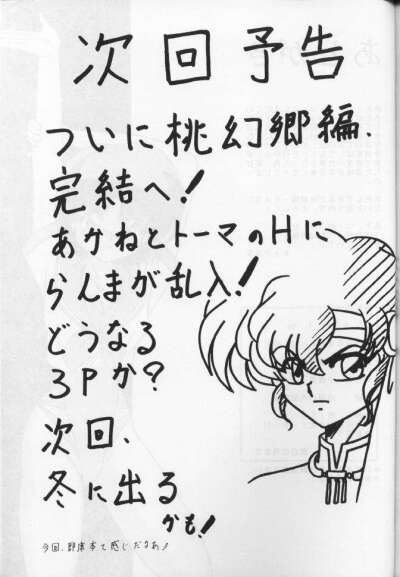 次回予告
ついに桃幻郷編、
完結へ！
あかねとトーマのHに
らんまが乱入！
どうなる
3Pか？
次回、
冬に出る
かも！